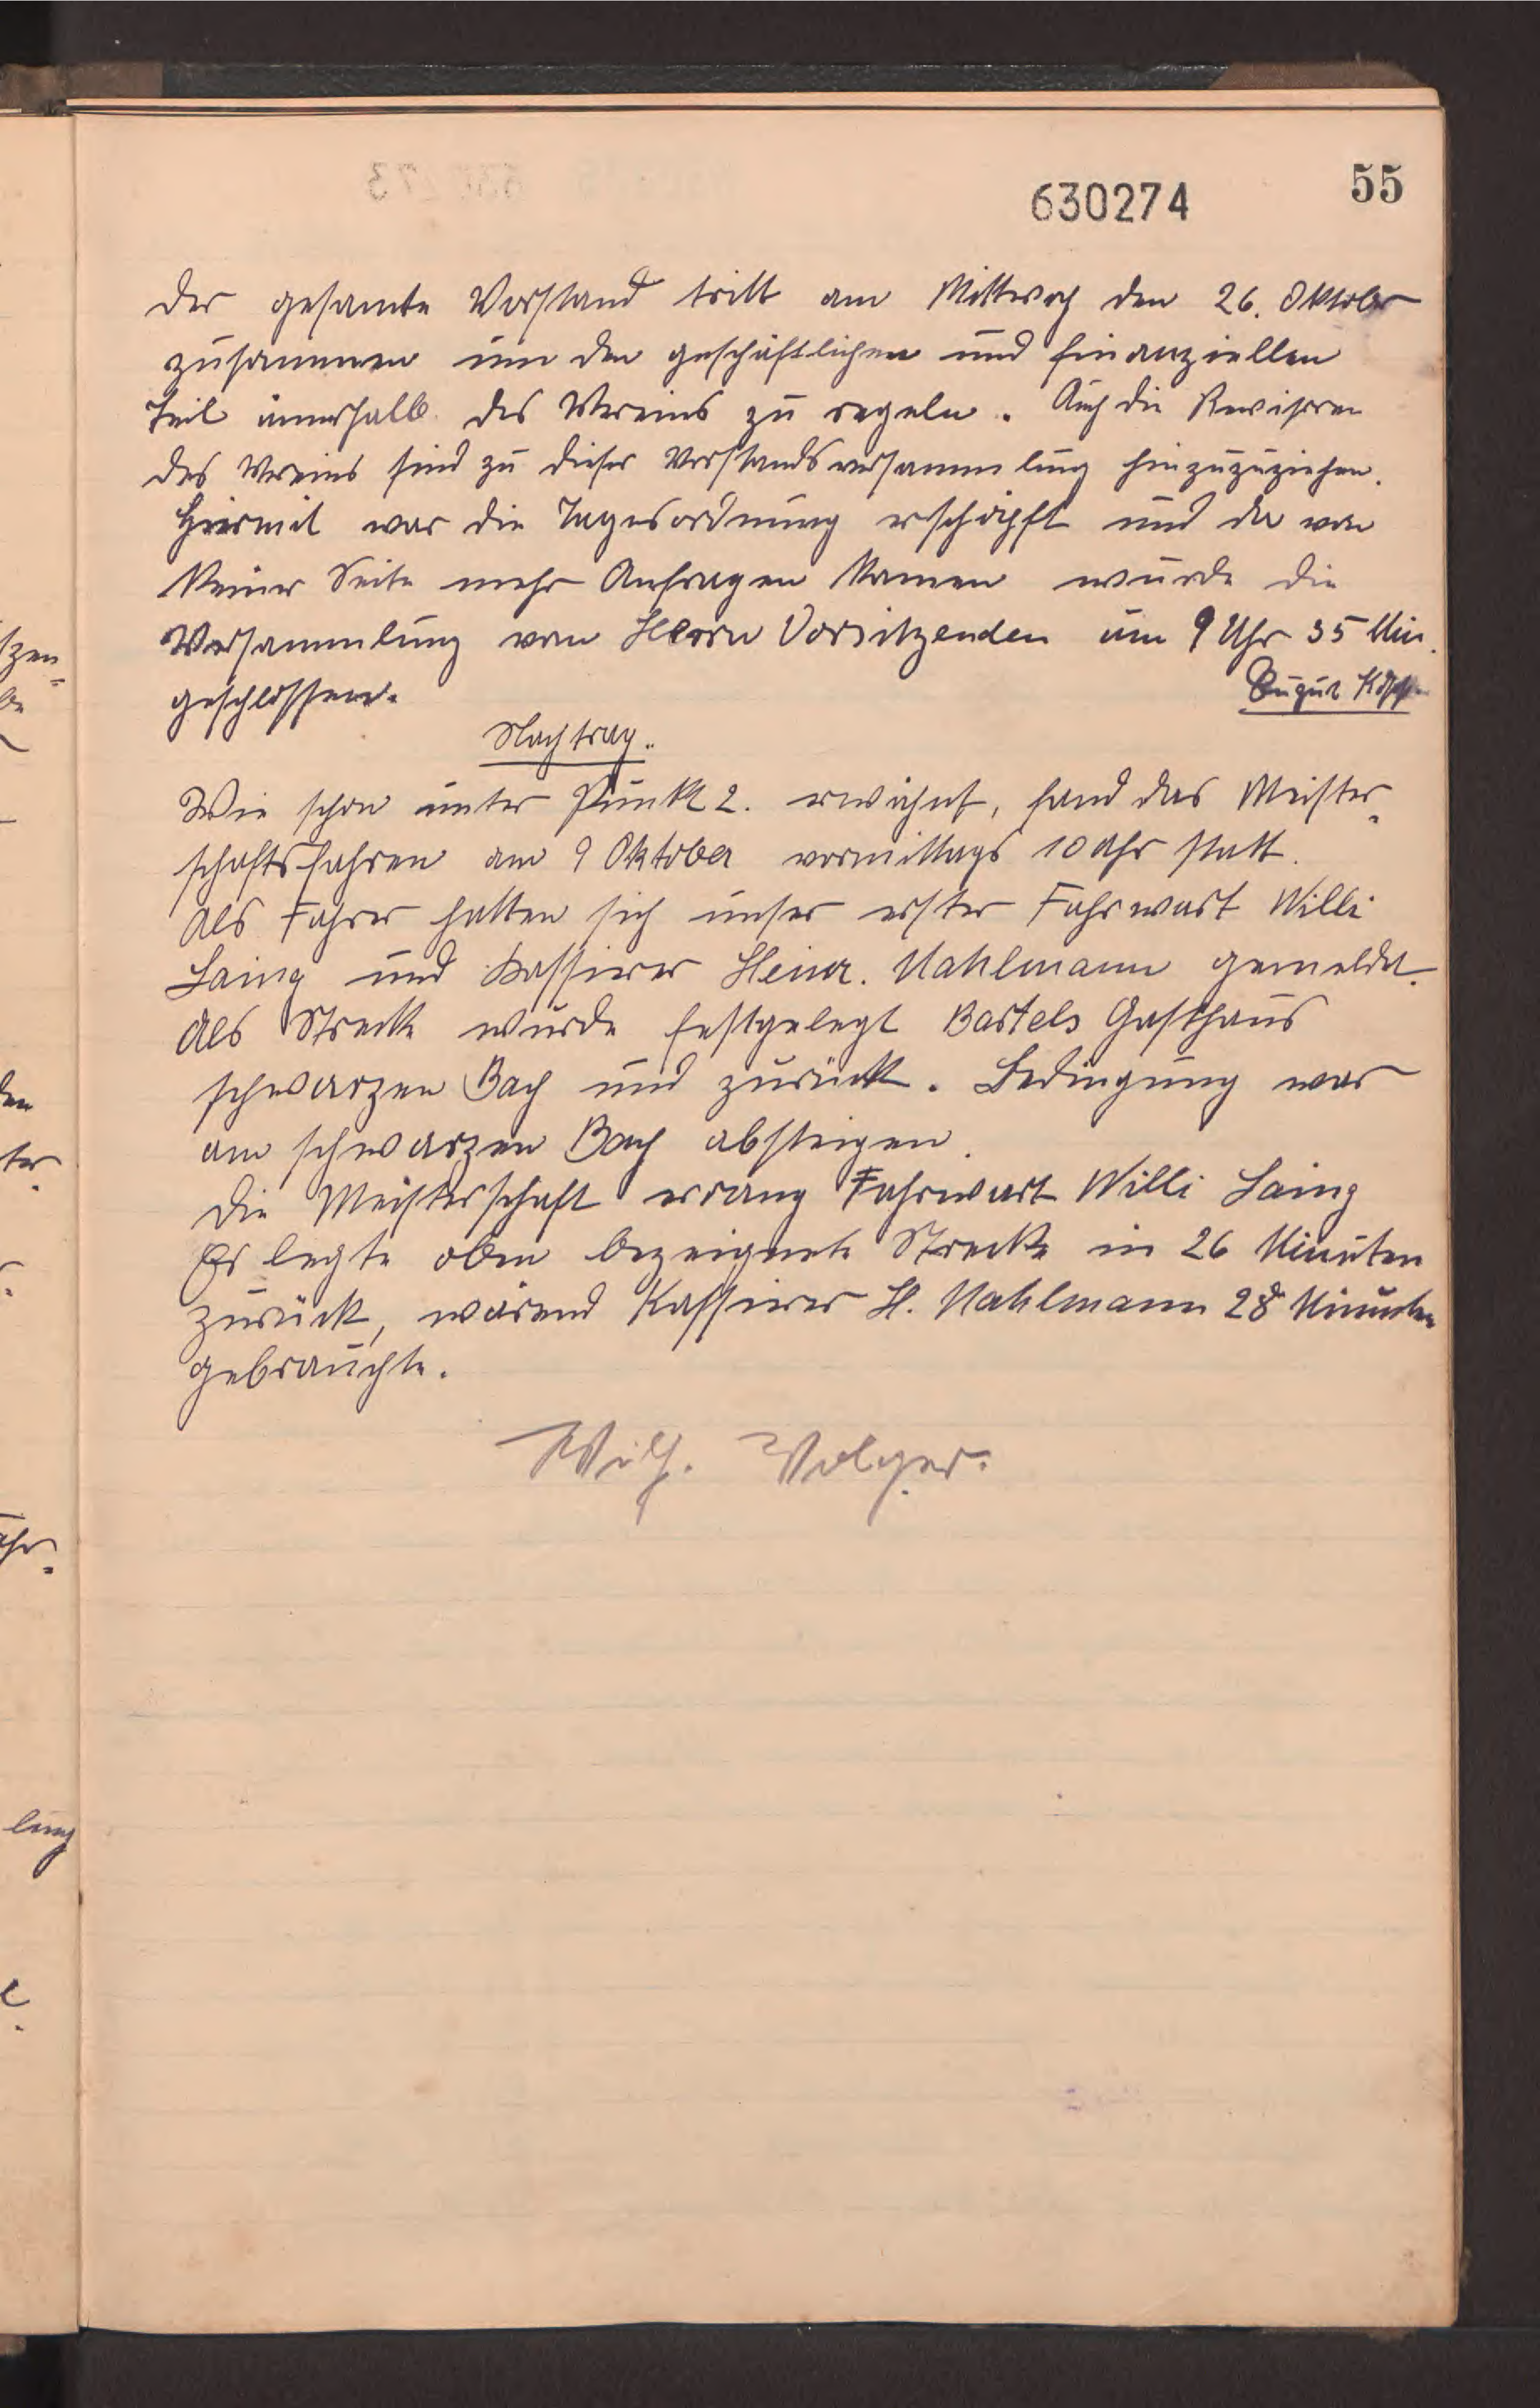 55
630274
der gesamte Vorstand tritt am Mittwoch den 26. Oktober
zusammen um den geschäftlichen und finanziellen
Teil innerhalb des Vereins zu regeln. Auch die Revisoren
des Vereins sind zu dieser Vorstandsversammlung hinzuzuziehen.
Hiermit war die Tagesordnung erschöpft und da von
keiner Seite mehr Anfragen kamen wurde die
Versammlung vom Herrn Vorsitzenden um 9 Uhr 35 Min.
geschlossen.
August
Nachtrag.
Wie schon unter Punkt 2. erwähnt, fand das Meister-
schaftsfahren am 9 Oktober vormittags 10 Uhr statt.
Als Fahrer hatten sich unser erster Fahrwart Willi
Laing und Kassierer Heinr. Mahlmann gemeldet.
Als Strecke wurde festgelegt Bartels Gasthaus
schwarzen Bach und zurück. Bedingung war
am schwarzen Bach absteigen.
Die Meisterschaft errang Fahrwart Willi Laing
Er legte oben bezeignete Strecke in 26 Minuten
zurück, wärend Kassierer H. Mahlmann 28 Minuten
gebrauchte.
Wilh. Volger.